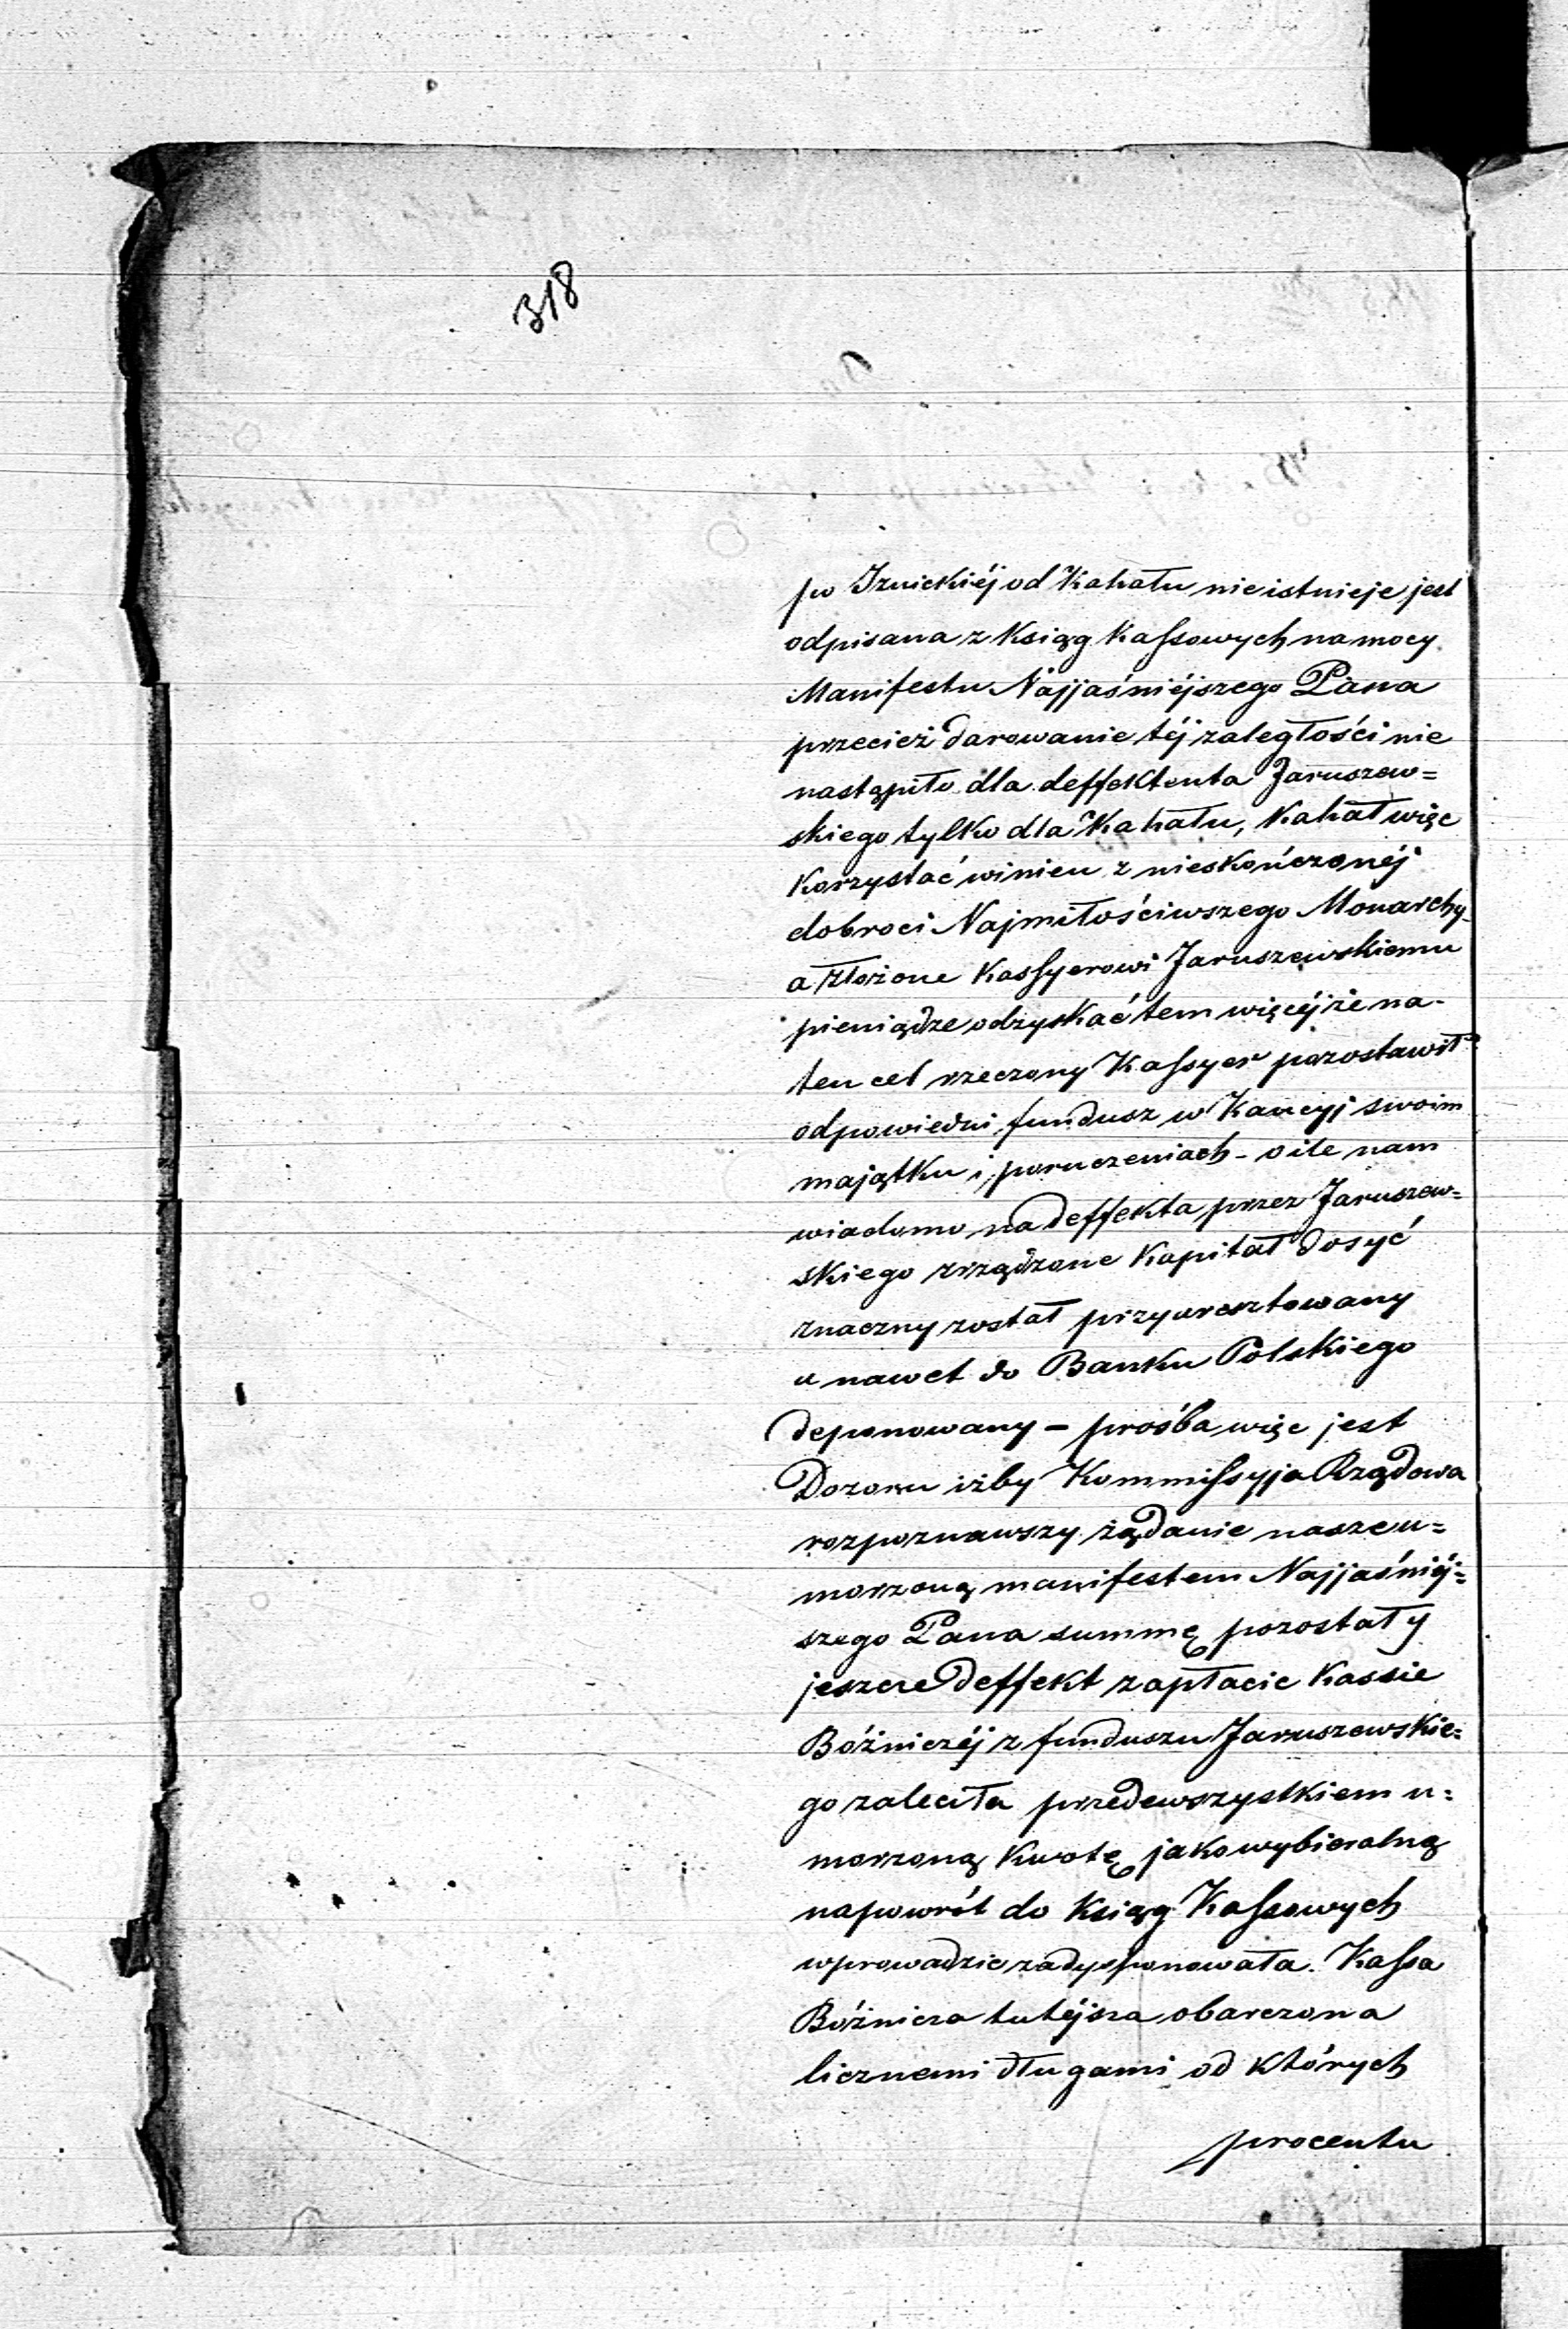 318
po Iznickiéj od Kahału nie istnieje jest
odpisana z Ksiąg Kassowych na mocy
Manifestu Najjaśniéjszego Pana
przecież darowanie téj zaległości nie
nastąpiło dla deffektenta Jaruszew=
skiego tylko dla Kahału, Kahał więc
Korzystać winien z nieskończonéj
dobroci Najmiłościwszego Monarchy
a złożone Kassyerowi Jaruszewskiemu
pieniądze odzyskać tem więcéj że na-
ten cel rzeczony Kassyer pozostawił
odpowiedni fundusz w Kaucyj swoim
majątku i poruczeniach - o ile nam
wiadomo na deffekta przez Jaruszew=
skiego zrządzone Kapitał dosyć
znaczny został przyaresztowany
a nawet do Banku Polskiego
deponowany – prośba więc jest
Dozoru iżby Kommissyja Rządowa
rozpoznawszy żądanie nasze u=
morzoną manifestem Najjaśniéj=
szego Pana summę pozostały
jeszcze deffekt zapłacie Kassie
Bóżniczéj z funduszu Jaruszewskie=
go zaleciła przedewszystkiem u=
morzoną Kwotę jako wybieralną
napowrót do Ksiąg Kassowych
wprowadzic zadysponowała. Kassa
Bóżnicza tutéjsza obarczona
licznemi długami od których
procentu